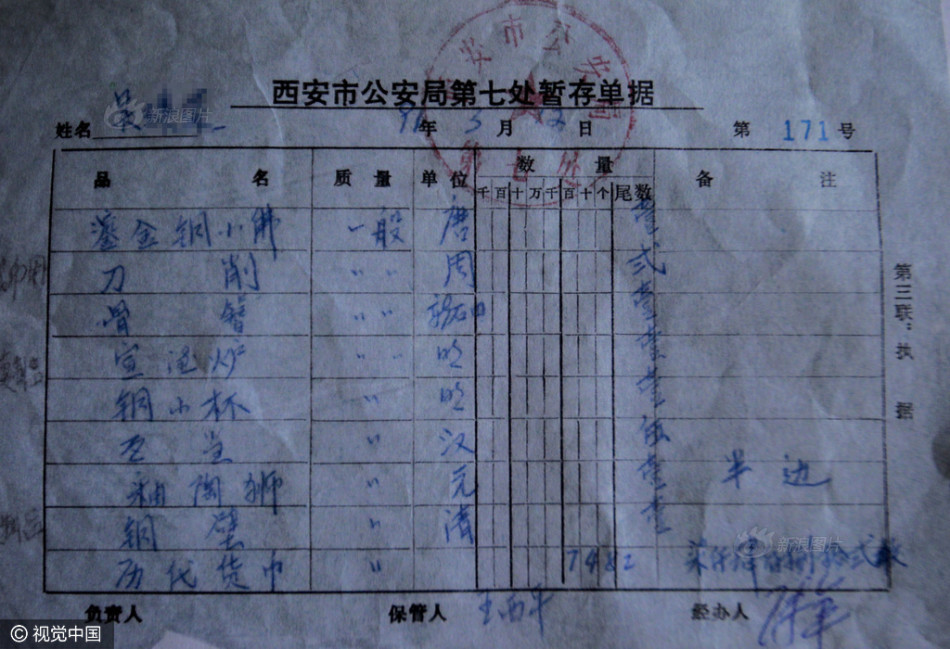 西安市公安局
第七处
西安市公安局第七处暂存单据
姓名 吴 年 3 月 12 日 第 171 号
品 名 质 量 单 位 数 量 备 注
千 百 十 万 千 百 十 个 尾数
鎏金铜小佛 一般 唐 壹
刀 削 〃〃 周 弍
骨 簪 〃〃 壹
宣德炉 〃〃 明 壹
铜小杯 〃 明 壹
瓦当 〃 汉 伍
釉陶狮 〃 元 壹 半边
铜 壁 〃 清 壹
历代货币 〃 7482 柒仟肆佰捌拾弍枚
第三联:执据
负责人 保管人 王西平 经办人
新浪图片
新浪图片
© 视觉中国